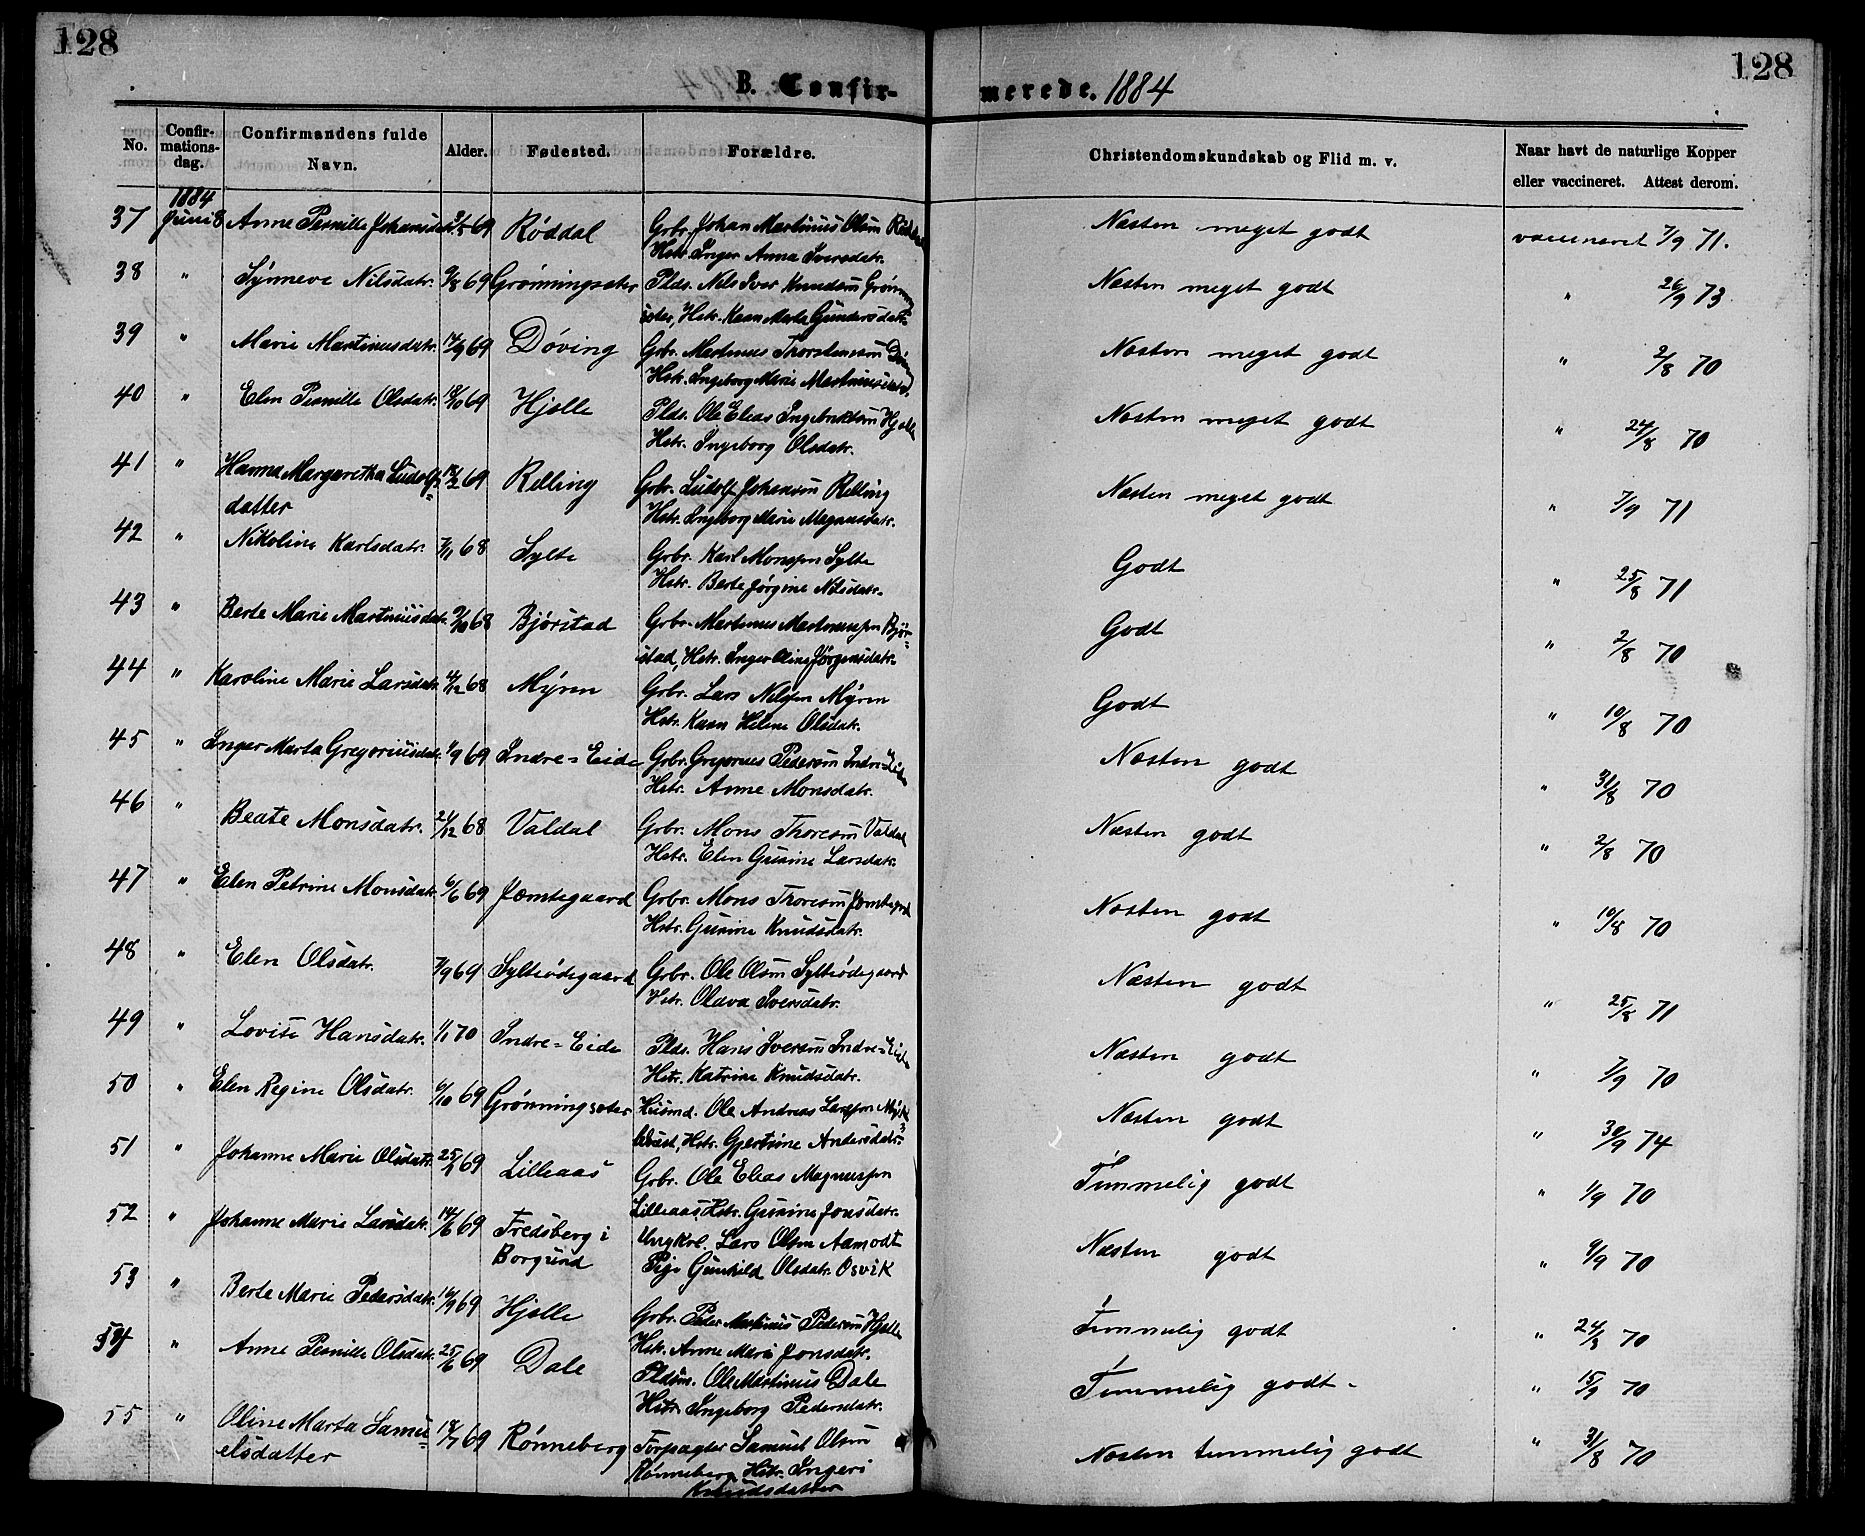 128
128
B. Confir- merede. 1884
No. Confir-mations-dag. Confirmandens fulde Navn. Alder. Fødested. Forældre. Christendomskundskab og Flid m. v. Naar havt de naturlige Kopper eller vaccineret. Attest derom.
1884
37 Juni 8 Anne Pernille Johansdatr. 69 Røddal Grbr. Johan Martinus Olsen Næsten meget godt vaccineret 7/9 71.
Hstr. Inger Anna Iversdatr.
38 " Synneve Nilsdatr. 69 Grønningsæter Plds. Nils Iver Knudsen Grønning Næsten meget godt " 26/9 73
sæter, Hstr. Karen Marta Gundersdatr.
39 " Marie Martinusdatr. 14/9 69 Døving Grbr. Martinus Thorstensen Døving Næsten meget godt " 2/8 70
Hstr. Ingeborg Marie Martinusdatr.
40 " Elen Pernille Olsdatr. 18/10 69 Hjelle Plds. Ole Elias Ingebriktsen Hjelle Næsten meget godt " 24/8 70
Hstr. Ingeborg Olsdatr.
41 " Hanna Margaretha Ludolfs= 18/2 69 Relling Grbr. Ludolf Johansen Relling Næsten meget godt " 7/9 71
datter Hstr. Ingeborg Marie Magnusdatr.
42 " Nikoline Karlsdatr. 68 Sylte Grbr. Karl Monssen Sylte Godt " 25/8 71
Hstr. Berte Jørgine Nilsdatr.
43 " Berte Marie Martinusdatr. 9/10 68 Bjørstad Grbr. Martinus Martinussen Bjør= Godt " 2/8 70
stad, Hstr. Inger Oline Jørgensdatr.
44 " Karoline Marie Larsdatr. 68 Myren Grbr. Lars Nilsen Myren Godt " 10/8 70
Hstr. Karen Helene Olsdatr.
45 " Inger Marta Gregoriusdatr. 1/9 69 Indre=Eide Grbr. Gregorius Pedersen Indre=Eide Næsten godt " 31/8 70
Hstr. Anne Monsdatr.
46 " Beate Monsdatr. 21/12 68 Valdal Grbr. Mons Thoresen Valdal Næsten godt " 2/8 70
Hstr. Elen Gurine Larsdatr.
47 " Elen Petrine Monsdatr. 6/6 69 Jemtegaard Grbr. Mons Thoresen Jemtegrd Næsten godt " 10/8 70
Hstr. Gurine Knudsdatr.
48 " Elen Olsdatr. 7/9 69 Sylteødegaard Grbr. Ole Olsen Sylteødegaard Næsten godt " 25/8 71
Hstr. Olava Iversdatr.
49 " Lovise Hansdatr. 1/1 70 Indre=Eide Plds. Hans Iversen Indre=Eide Næsten godt " 7/9 70
Hstr. Katrine Knudsdatr.
50 " Elen Regine Olsdatr. 6/10 69 Grønningsæter Husmd. Ole Andreas Larssen Næsten godt " 30/9 74
Hstr. Gjertine Andersdatr.
51 " Johanne Marie Olsdatr. 69 Lilleaas Grbr. Ole Elias Magnussen Temmelig godt " 1/9 70
Lilleaas, Hstr. Gurine Jonsdatr.
52 " Johanne Marie Larsdatr. 14/6 69 Fredsberg i Ungkrl. Lars Olsen Aamodt Næsten godt " 9/9 70
Borgund Pige Gunhild Olsdatr. Osvik
53 " Berte Marie Pedersdatr. 14/9 69 Hjelle Grbr. Peder Martinus Pedersen Hjelle Temmelig godt " 24/8 70
Hstr. Anne Marie Jonsdatr.
54 " Anne Pernille Olsdatr. 25/6 69 Dale Pldsm. Ole Martinus Dale Temmelig godt - " 15/9 70
Hstr. Ingeborg Pedersdatr.
55 " Oline Marta Samu= 18/7 69 Rønneberg Forpagter Samuel Olsen Næsten temmelig godt " 31/8 70
elsdatter Rønneberg, Hstr. Ingeri
Knudsdatter